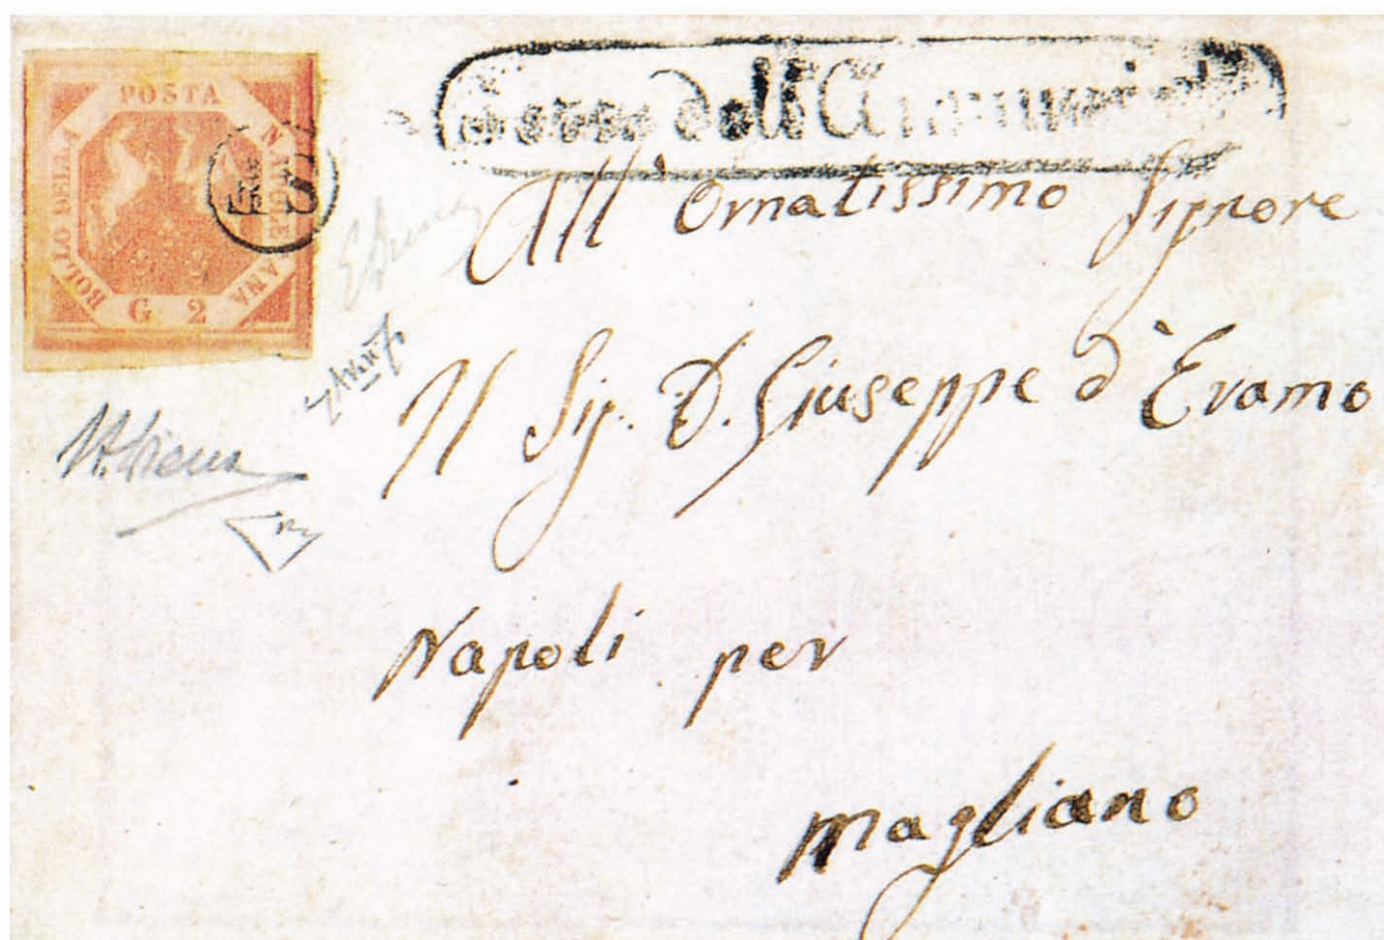 BOLLO DELLA
POSTA
NAPOLETANA
G. 2
dell'
All' Ornatissimo Signore
Il Sig. D. Giuseppe d'Eramo
Napoli per
Magliano